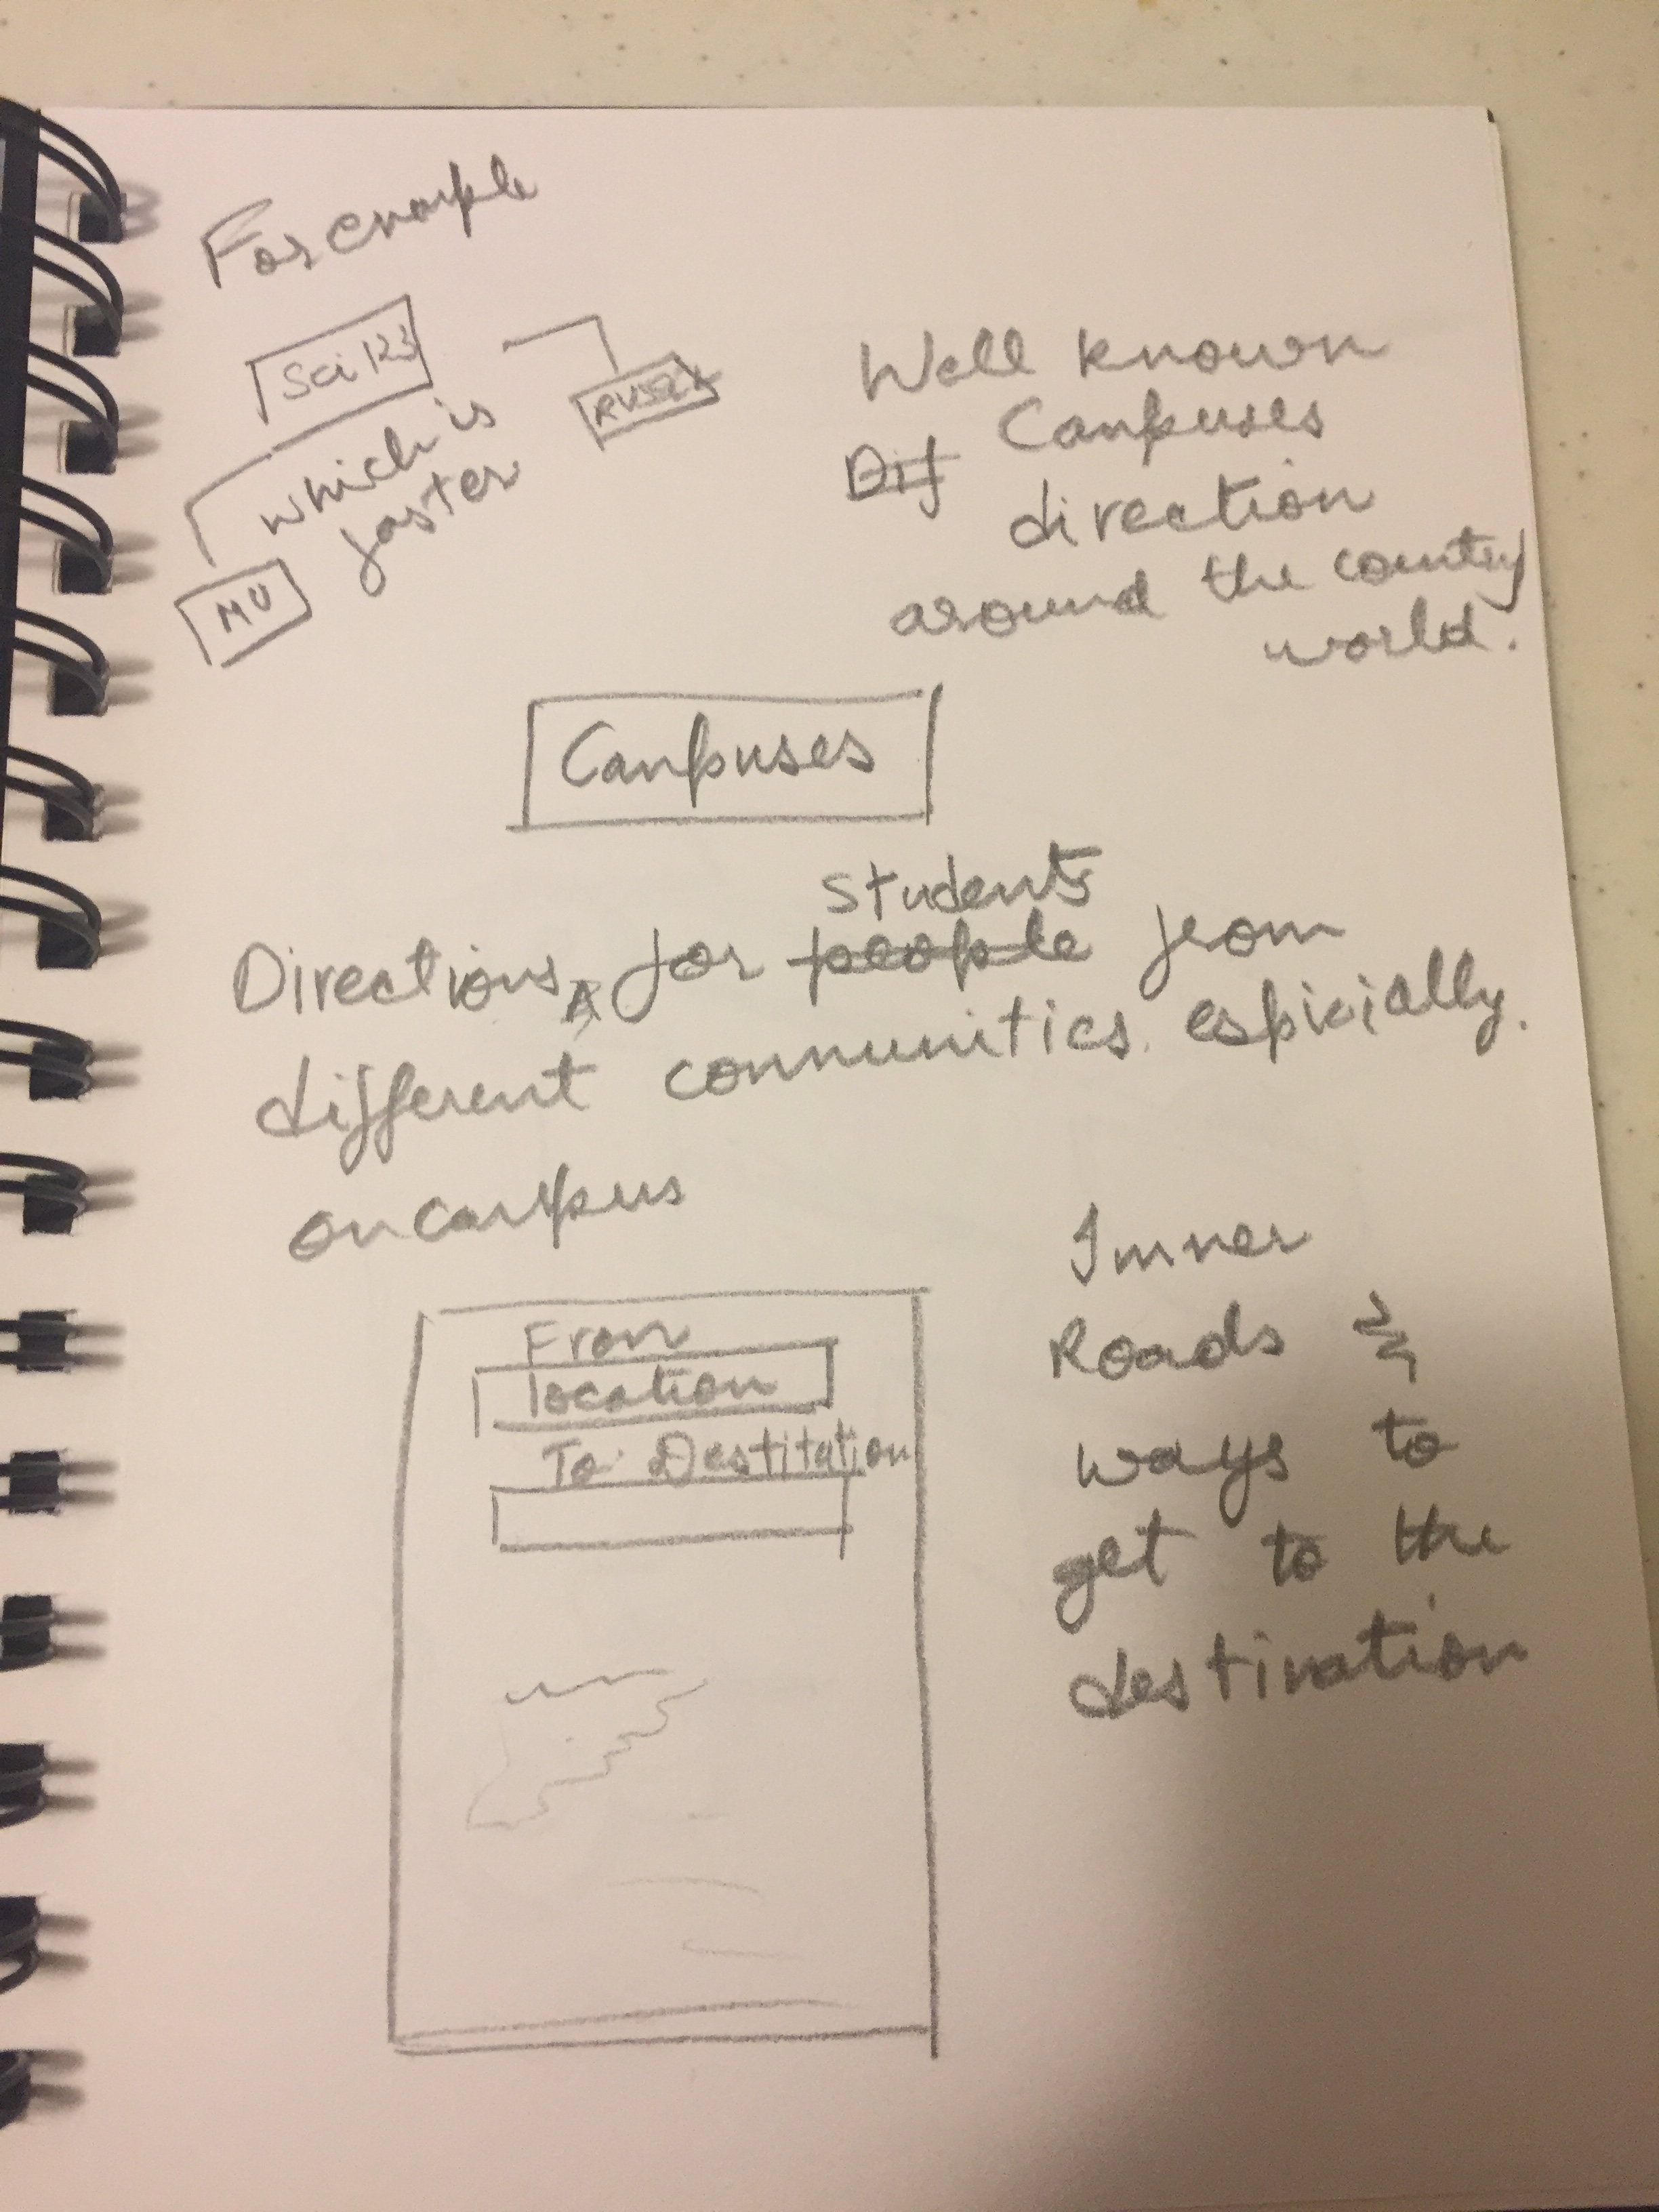 For example
Sci 123
which is
faster
MU
Well known
Campuses
Dif
direction
around the country
world.
Campuses
students
Directions for people from
different communities. espicially.
on campus
From
location
To Destitation
Inner
Roads &
ways to
get to the
destination